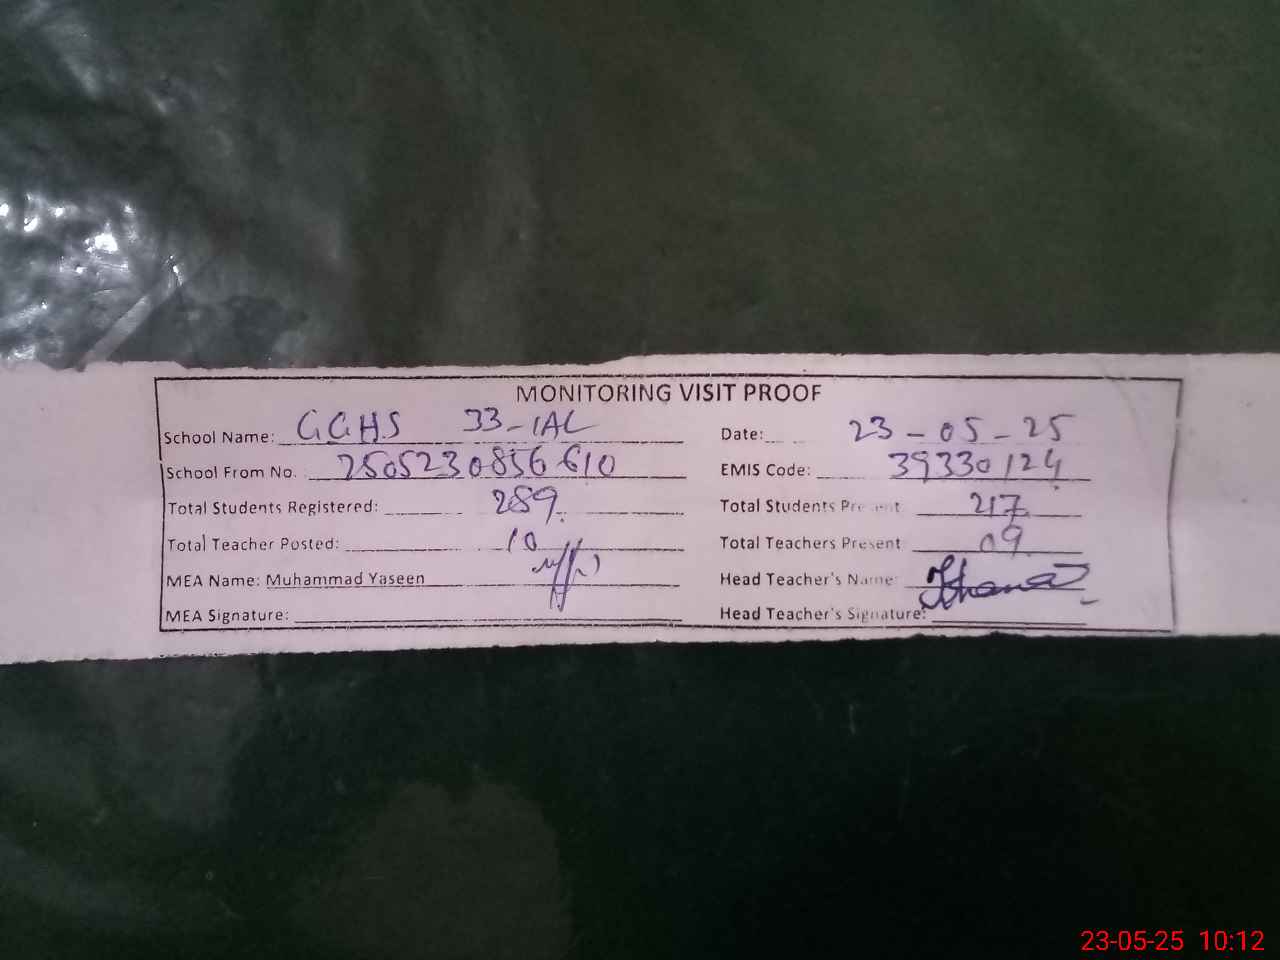 MONITORING VISIT PROOF
School Name: GGHS 33-1AL Date: 23-05-25
School From No. 2505230856610 EMIS Code: 39330124
Total Students Registered: 289 Total Students Present 217
Total Teacher Posted: 10 Total Teachers Present 09
MEA Name: Muhammad Yaseen Head Teacher's Name:
MEA Signature: Head Teacher's Signature:
23-05-25 10:12